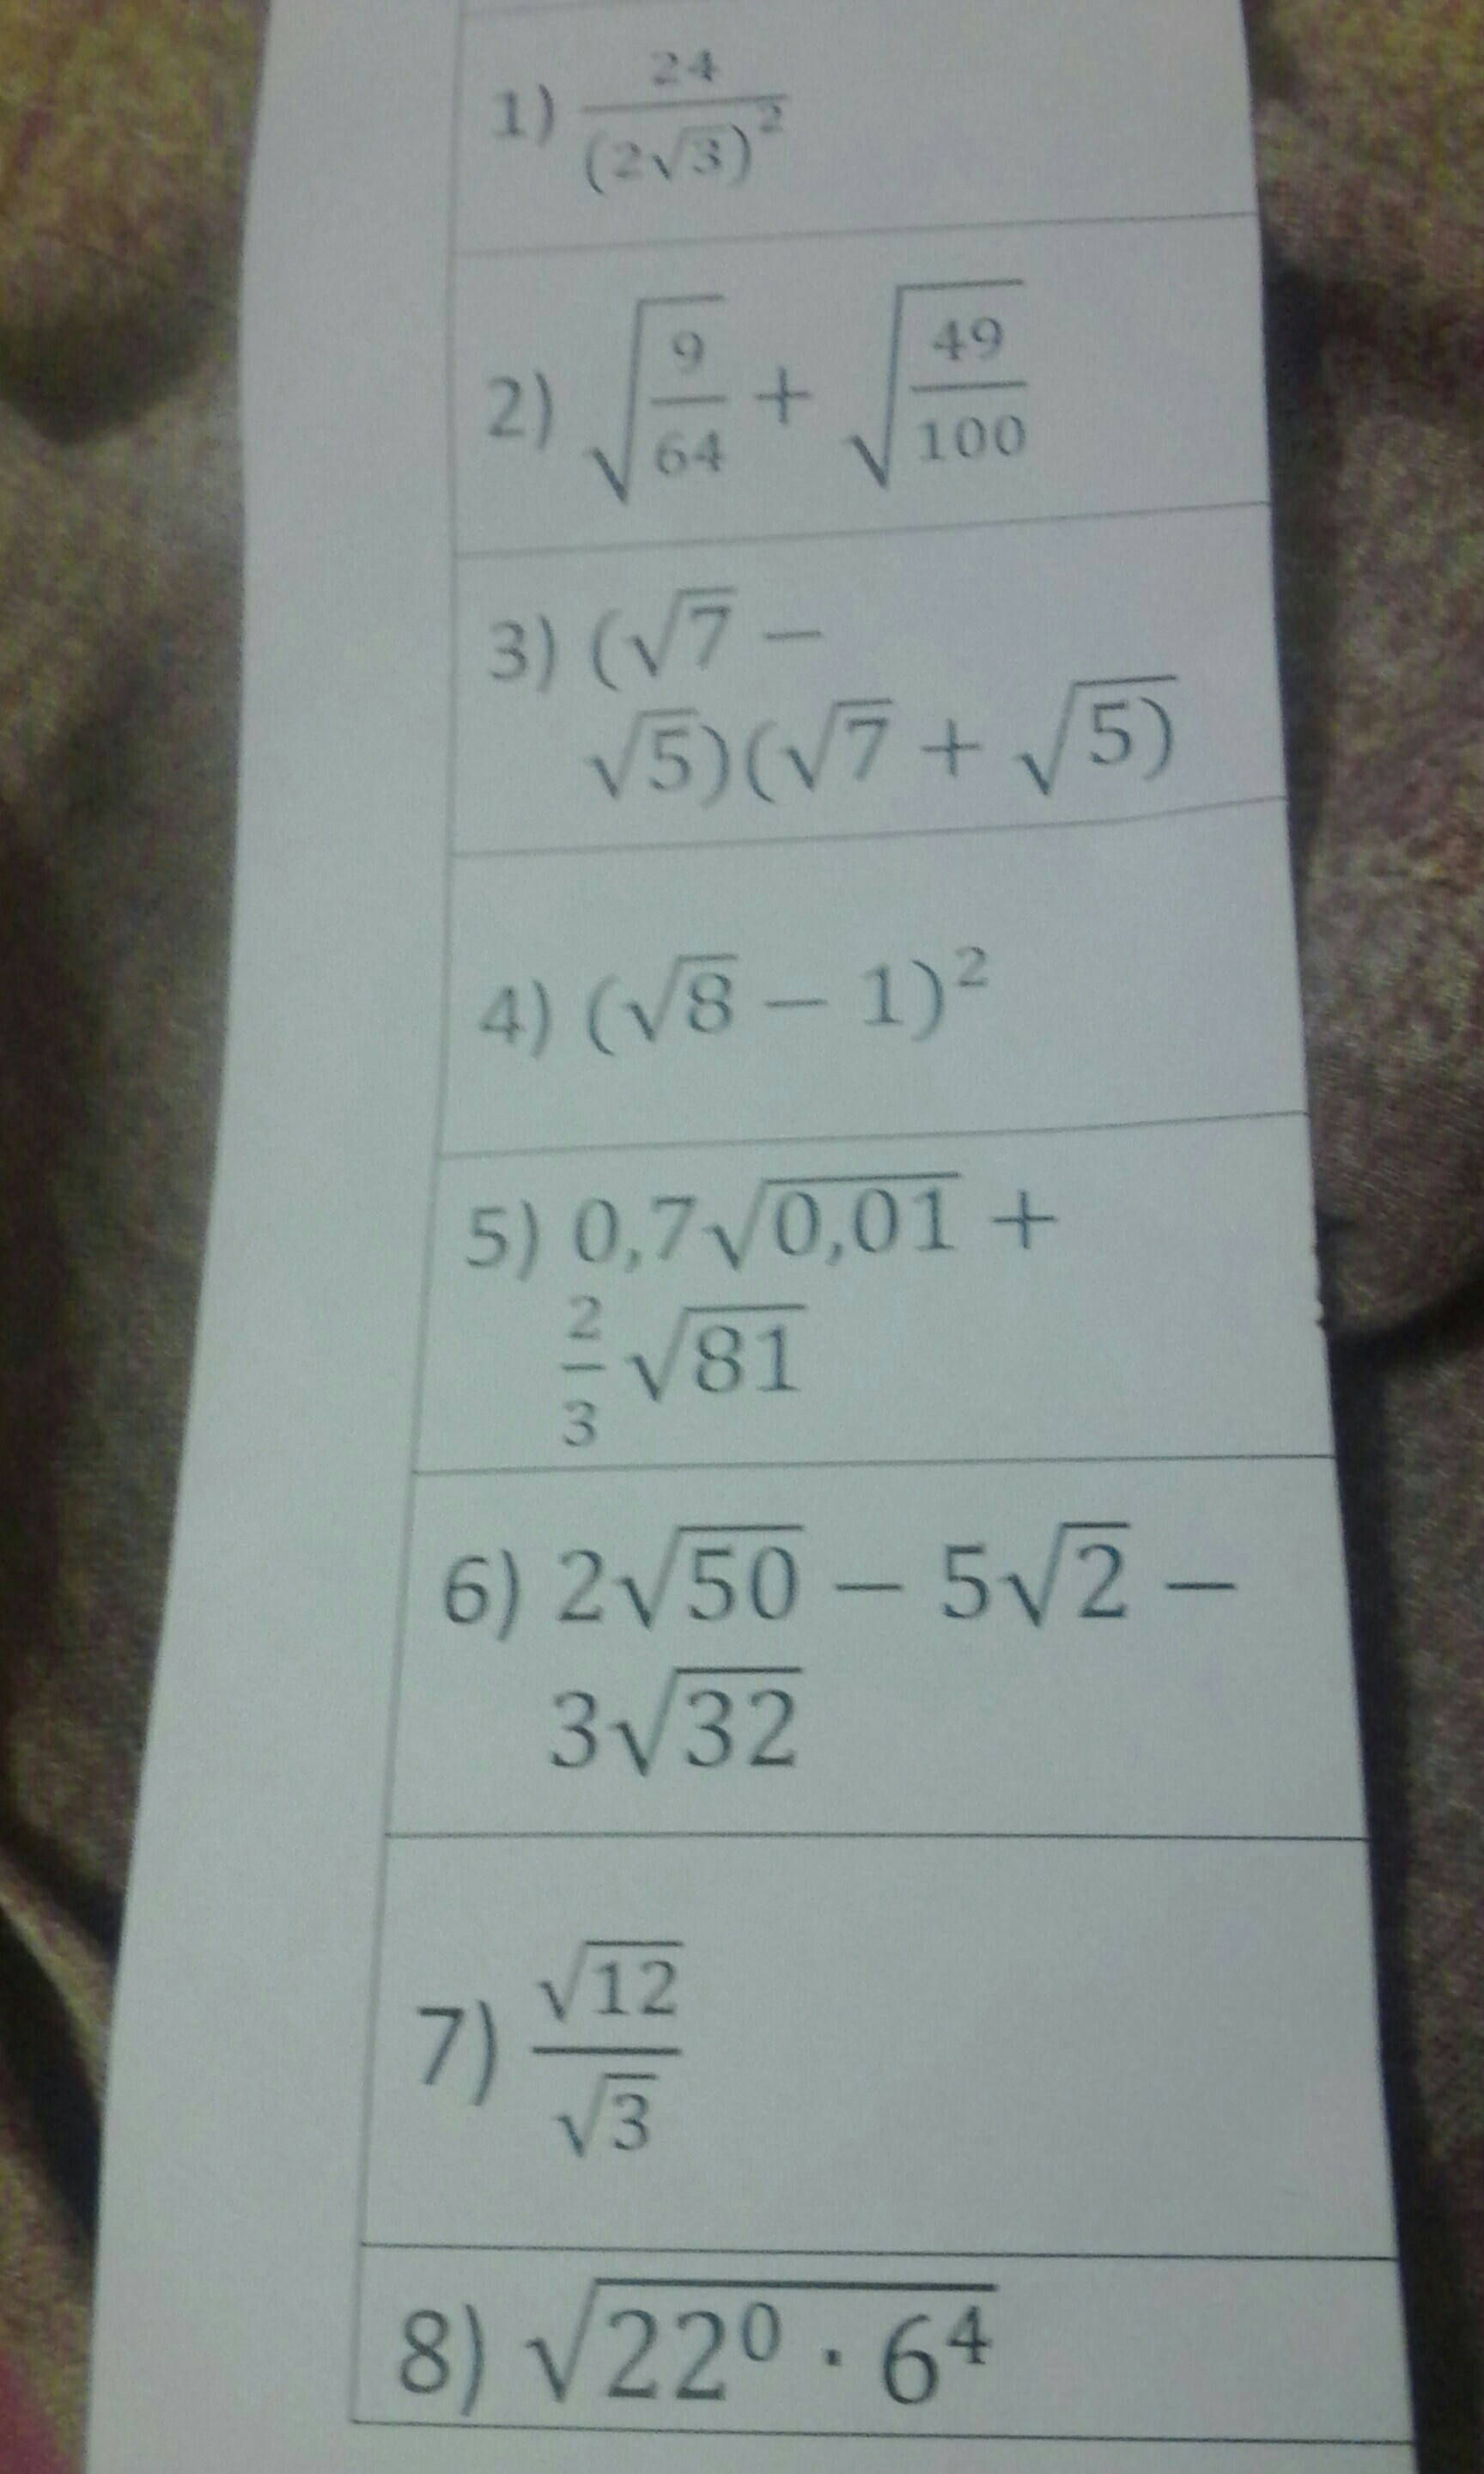 1) 24/(2√3)²
2) √(9/64) + √(49/100)
3) (√7 −
√5)(√7 + √5)
4) (√8 − 1)²
5) 0,7√0,01 +
2/3 √81
6) 2√50 − 5√2 −
3√32
7) √12/√3
8) √(22⁰ · 6⁴)